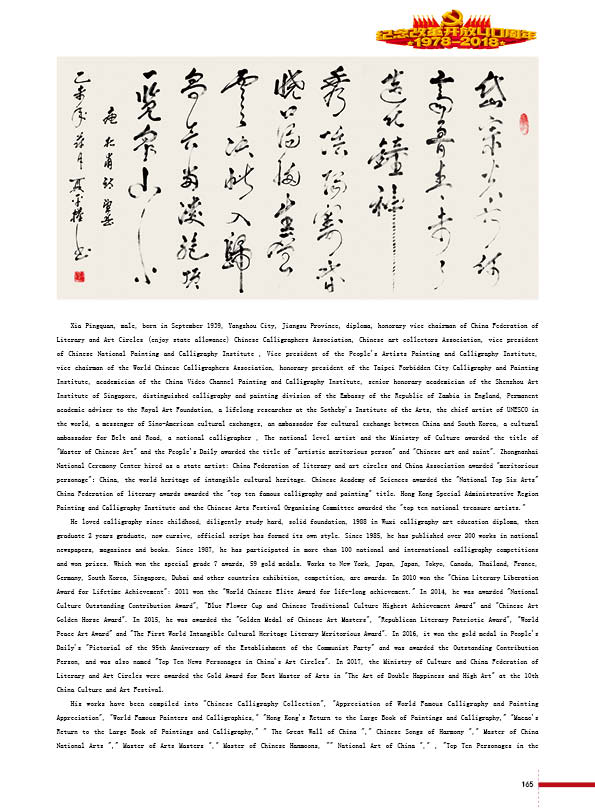 纪念改革开放40周年
1978-2018
岱宗夫如何
齊魯青未了
造化鐘神
秀陰陽割昏
曉蕩胸生層
雲決眥入歸
鳥會當凌絕頂
一覽眾山小
唐杜甫詩望岳
乙未年
Xia Pingquan, male, born in September 1939, Yangzhou City, Jiangsu Province, diploma, honorary vice chairman of China Federation of
Literary and Art Circles (enjoy state allowance) Chinese Calligraphers Association, Chinese art collectors Association, vice president
of Chinese National Painting and Calligraphy Institute , Vice president of the People's Artists Painting and Calligraphy Institute,
vice chairman of the World Chinese Calligraphers Association, honorary president of the Taipei Forbidden City Calligraphy and Painting
Institute, academician of the China Video Channel Painting and Calligraphy Institute, senior honorary academician of the Shenzhou Art
Institute of Singapore, distinguished calligraphy and painting division of the Embassy of the Republic of Zambia in England, Permanent
academic adviser to the Royal Art Foundation, a lifelong researcher at the Sotheby's Institute of the Arts, the chief artist of UNESCO in
the world, a messenger of Sino-American cultural exchanges, an ambassador for cultural exchange between China and South Korea, a cultural
ambassador for Belt and Road, a national calligrapher , The national level artist and the Ministry of Culture awarded the title of
"Master of Chinese Art" and the People's Daily awarded the title of "artistic meritorious person" and "Chinese art and saint". Zhongnanhai
National Ceremony Center hired as a state artist: China Federation of literary and art circles and China Association awarded "meritorious
personage": China, the world heritage of intangible cultural heritage. Chinese Academy of Sciences awarded the "National Top Six Arts"
China Federation of literary awards awarded the "top ten famous calligraphy and painting" title. Hong Kong Special Administrative Region
Painting and Calligraphy Institute and the Chinese Arts Festival Organizing Committee awarded the "top ten national treasure artists."
He loved calligraphy since childhood, diligently study hard, solid foundation, 1988 in Wuxi calligraphy art education diploma, then
graduate 2 years graduate, now cursive, official script has formed its own style. Since 1985, he has published over 200 works in national
newspapers, magazines and books. Since 1987, he has participated in more than 100 national and international calligraphy competitions
and won prizes. Which won the special grade 7 awards, 59 gold medals. Works to New York, Japan, Japan, Tokyo, Canada, Thailand, France,
Germany, South Korea, Singapore, Dubai and other countries exhibition, competition, are awards. In 2010 won the "China Literary Liberation
Award for Lifetime Achievement": 2011 won the "World Chinese Elite Award for life-long achievement." In 2014, he was awarded "National
Culture Outstanding Contribution Award", "Blue Flower Cup and Chinese Traditional Culture Highest Achievement Award" and "Chinese Art
Golden Horse Award". In 2015, he was awarded the "Golden Medal of Chinese Art Masters", "Republican Literary Patriotic Award", "World
Peace Art Award" and "The First World Intangible Cultural Heritage Literary Meritorious Award". In 2016, it won the gold medal in People's
Daily's "Pictorial of the 95th Anniversary of the Establishment of the Communist Party" and was awarded the Outstanding Contribution
Person, and was also named "Top Ten News Personages in China's Art Circles". In 2017, the Ministry of Culture and China Federation of
Literary and Art Circles were awarded the Gold Award for Best Master of Arts in "The Art of Double Happiness and High Art" at the 10th
China Culture and Art Festival.
His works have been compiled into "Chinese Calligraphy Collection", "Appreciation of World Famous Calligraphy and Painting
Appreciation", "World Famous Painters and Calligraphics," "Hong Kong's Return to the Large Book of Paintings and Calligraphy," "Macao's
Return to the Large Book of Paintings and Calligraphy," " The Great Wall of China "," Chinese Songs of Harmony "," Master of China
National Arts "," Master of Arts Masters "," Master of Chinese Harmoons, "" National Art of China "," , "Top Ten Personages in the
165